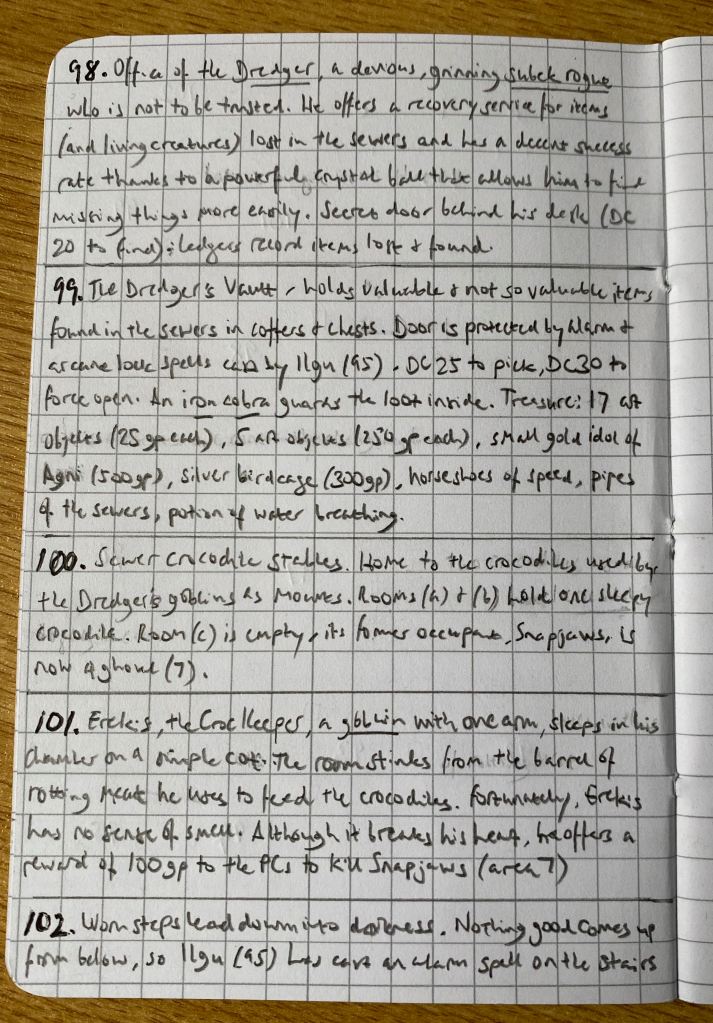 98. Office of the Dredger, a devious, grinning subek rogue
who is not to be trusted. He offers a recovery service for items
(and living creatures) lost in the sewers and has a decent success
rate thanks to a powerful crystal ball that allows him to find
missing things more easily. Secret door behind his desk (DC
20 to find); ledgers record items lost & found.
99. The Dredger's Vault, holds valuable & not so valuable items
found in the sewers in coffers & chests. Door is protected by alarm &
arcane lock spells cast by Ilgu (95). DC25 to pick, DC30 to
force open. An iron cobra guards the loot inside. Treasure: 17 art
objects (25gp each), 5 art objects (250gp each), small gold idol of
Agni (500gp), silver birdcage (300gp), horseshoes of speed, pipes
of the sewers, potion of water breathing.
100. Sewer crocodile stables. Home to the crocodiles used by
the Dredger's goblins as mounts. Rooms (a) & (b) hold one sleepy
crocodile. Room (c) is empty, its former occupant, Snapjaws, is
now a ghoul (7).
101. Erekis, the Croc Keeper, a goblin with one arm, sleeps in his
chamber on a simple cot. The room stinks from the barrel of
rotting meat he uses to feed the crocodiles. Fortunately, Erekis
has no sense of smell. Although it breaks his heart, he offers a
reward of 100gp to the PCs to kill Snapjaws (area 7)
102. Worn steps lead down into darkness. Nothing good comes up
from below, so Ilgu (95) has cast an alarm spell on the stairs